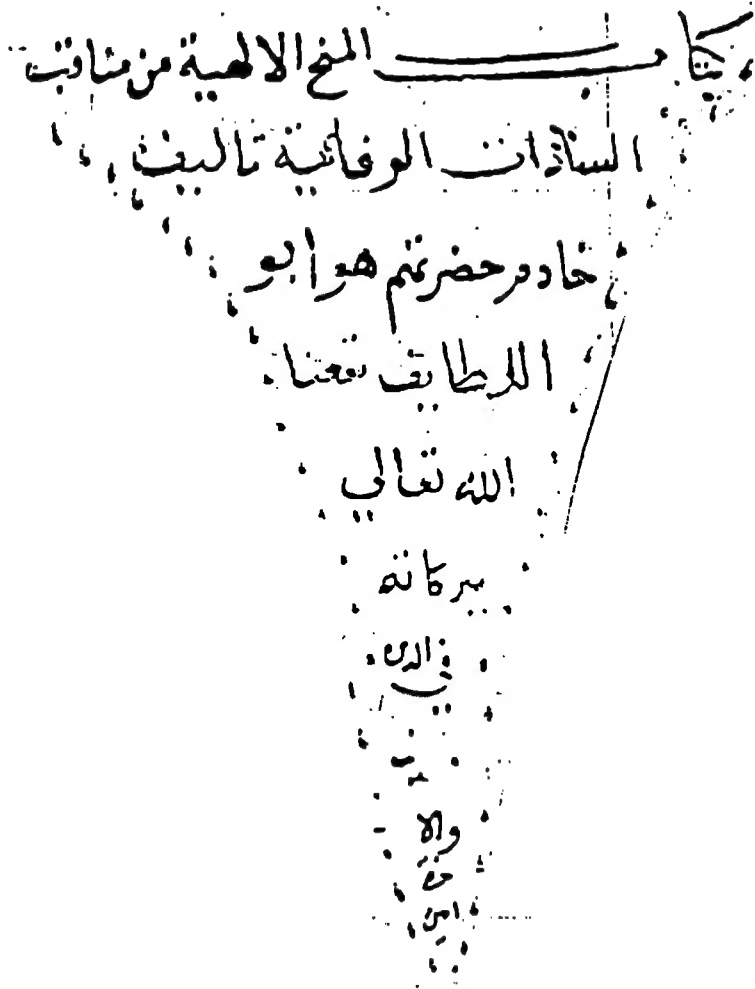 كتاب المنح الالهية من مناقب
السادات الوفائية تاليف
خادم حضرتهم هو ابو
اللطايف نفعنا
الله تعالي
ببركاته
في الد
والا
خرة
امين